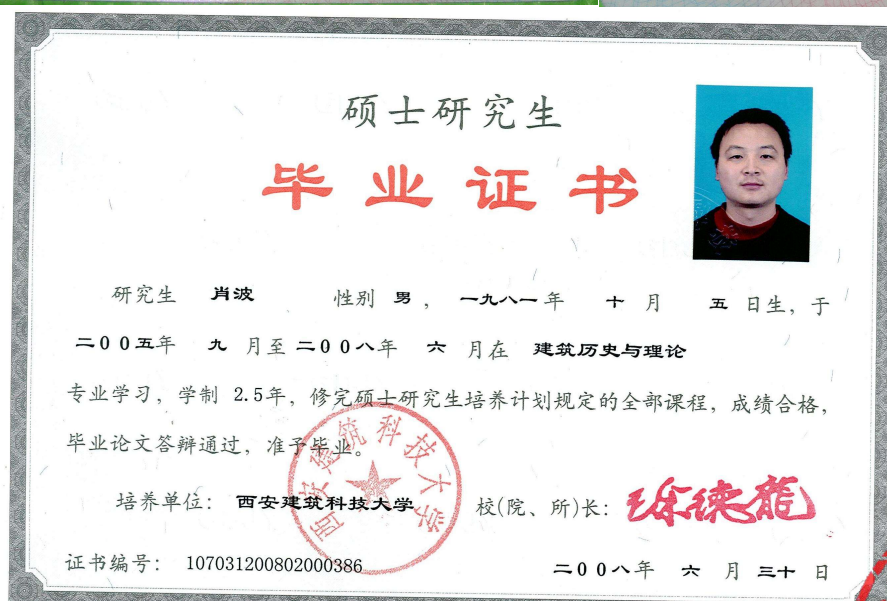 硕士研究生
毕业证书
研究生 肖波 性别 男，一九八一年 十 月 五 日生，于
二00五年 九 月至二00八年 六 月在 建筑历史与理论
专业学习，学制 2.5年，修完硕士研究生培养计划规定的全部课程，成绩合格，
毕业论文答辩通过，准予毕业。
西安建筑科技大学
培养单位：西安建筑科技大学 校(院、所)长：徐德龙
证书编号：107031200802000386 二00八年 六 月 三十 日